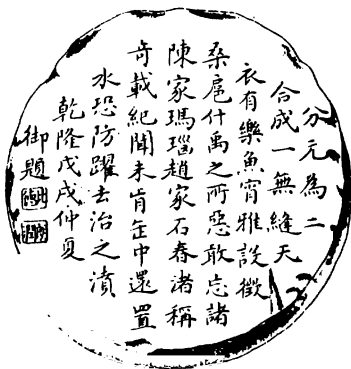 分元為二
合成一無縫天
衣有樂魚宵雅設徵
桑扈什禹之所惡敢忘諸
陳家瑪瑙趙家石春渚稱
奇載紀聞未肯缶中還置
水恐防躍去治之漬
乾隆戊戌仲夏
御題